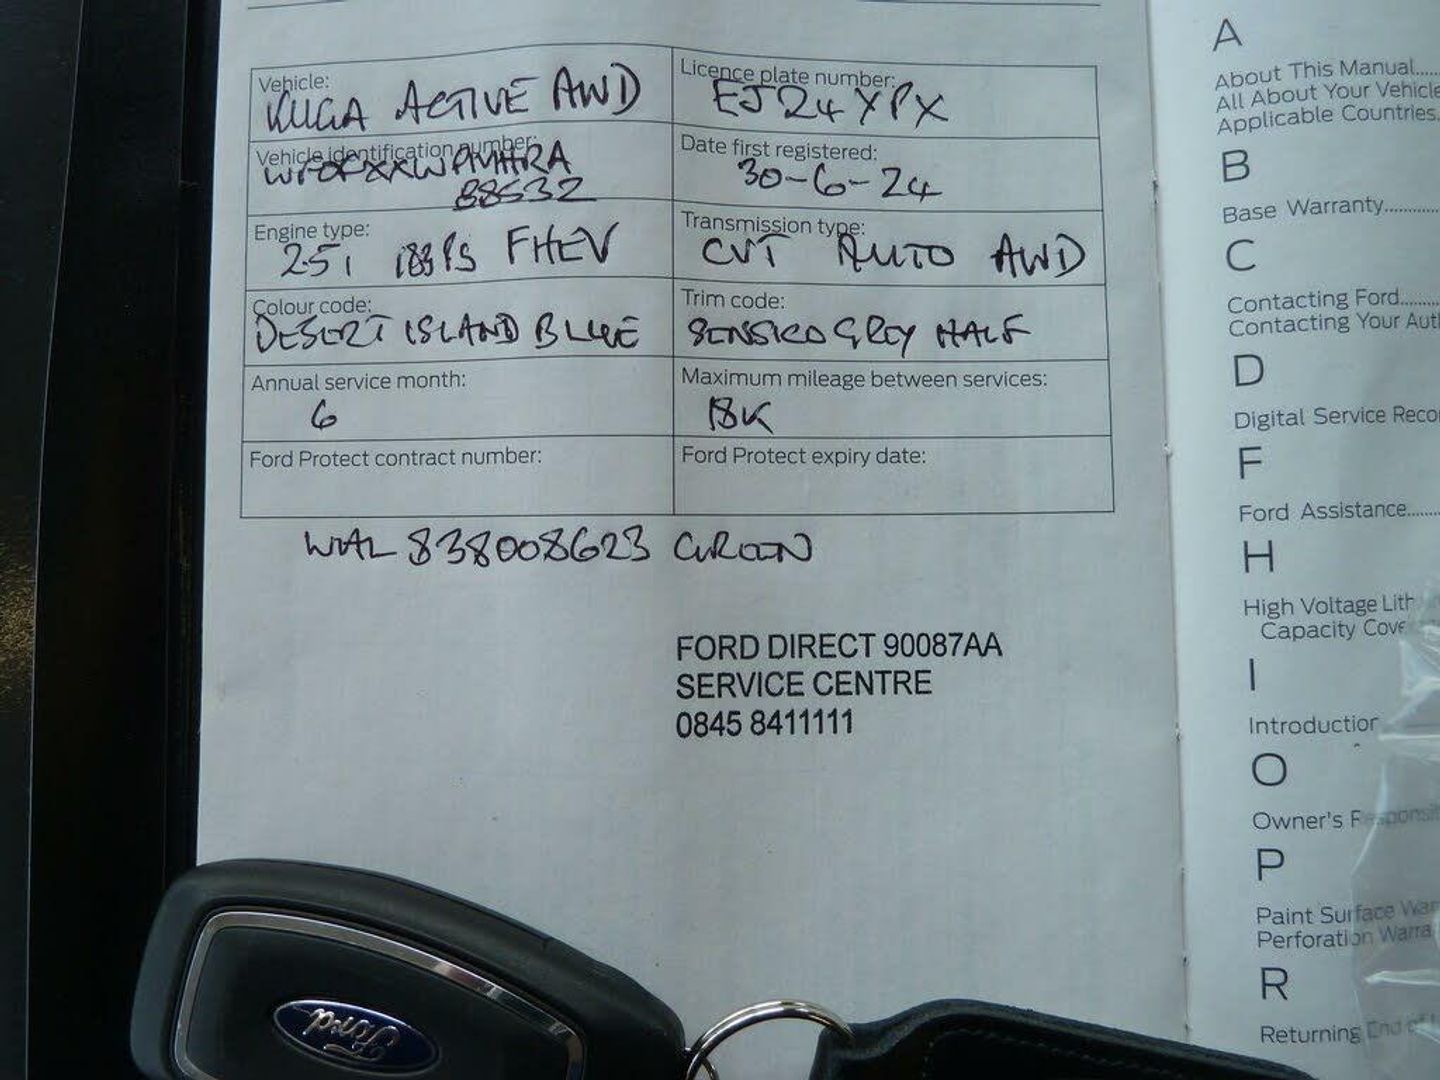 Vehicle:
KUGA ACTIVE AWD
Licence plate number:
EJ24 YPX
Vehicle identification number:
WF0FXXWPMHRA
88532
Date first registered:
30-6-24
Engine type:
2.5i 183PS FHEV
Transmission type:
CVT AUTO AWD
Colour code:
DESERT ISLAND BLUE
Trim code:
SENSICO GREY HALF
Annual service month:
6
Maximum mileage between services:
18K
Ford Protect contract number:
Ford Protect expiry date:
838008623 GREEN
FORD DIRECT 90087AA
SERVICE CENTRE
0845 8411111
Ford
A
About This Manual......
All About Your Vehicle
Applicable Countries
B
Base Warranty............
C
Contacting Ford.........
Contacting Your Aut
D
Digital Service Reco
F
Ford Assistance........
H
High Voltage Lith
Capacity Cove
I
Introduction
O
Owner's Responsi
P
Paint Surface War
Perforation Warra
R
Returning End of